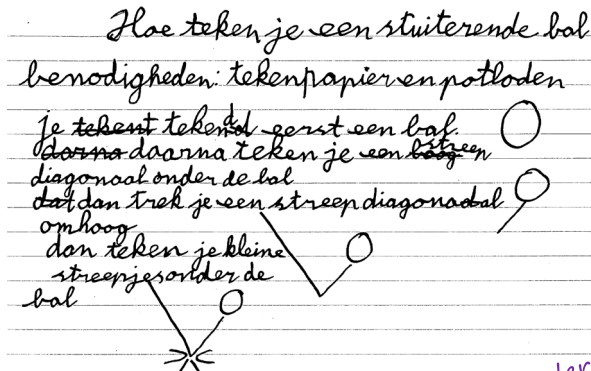 Hoe teken je een stuiterende bal
benodigheden: tekenpapier en potloden
je tekent tekend eerst een bal.
darna daarna teken je een boog streep
diagonaal onder de bal
dat dan trek je een streep diagonadal
omhoog
dan teken je kleine
streepjes onder de
bal